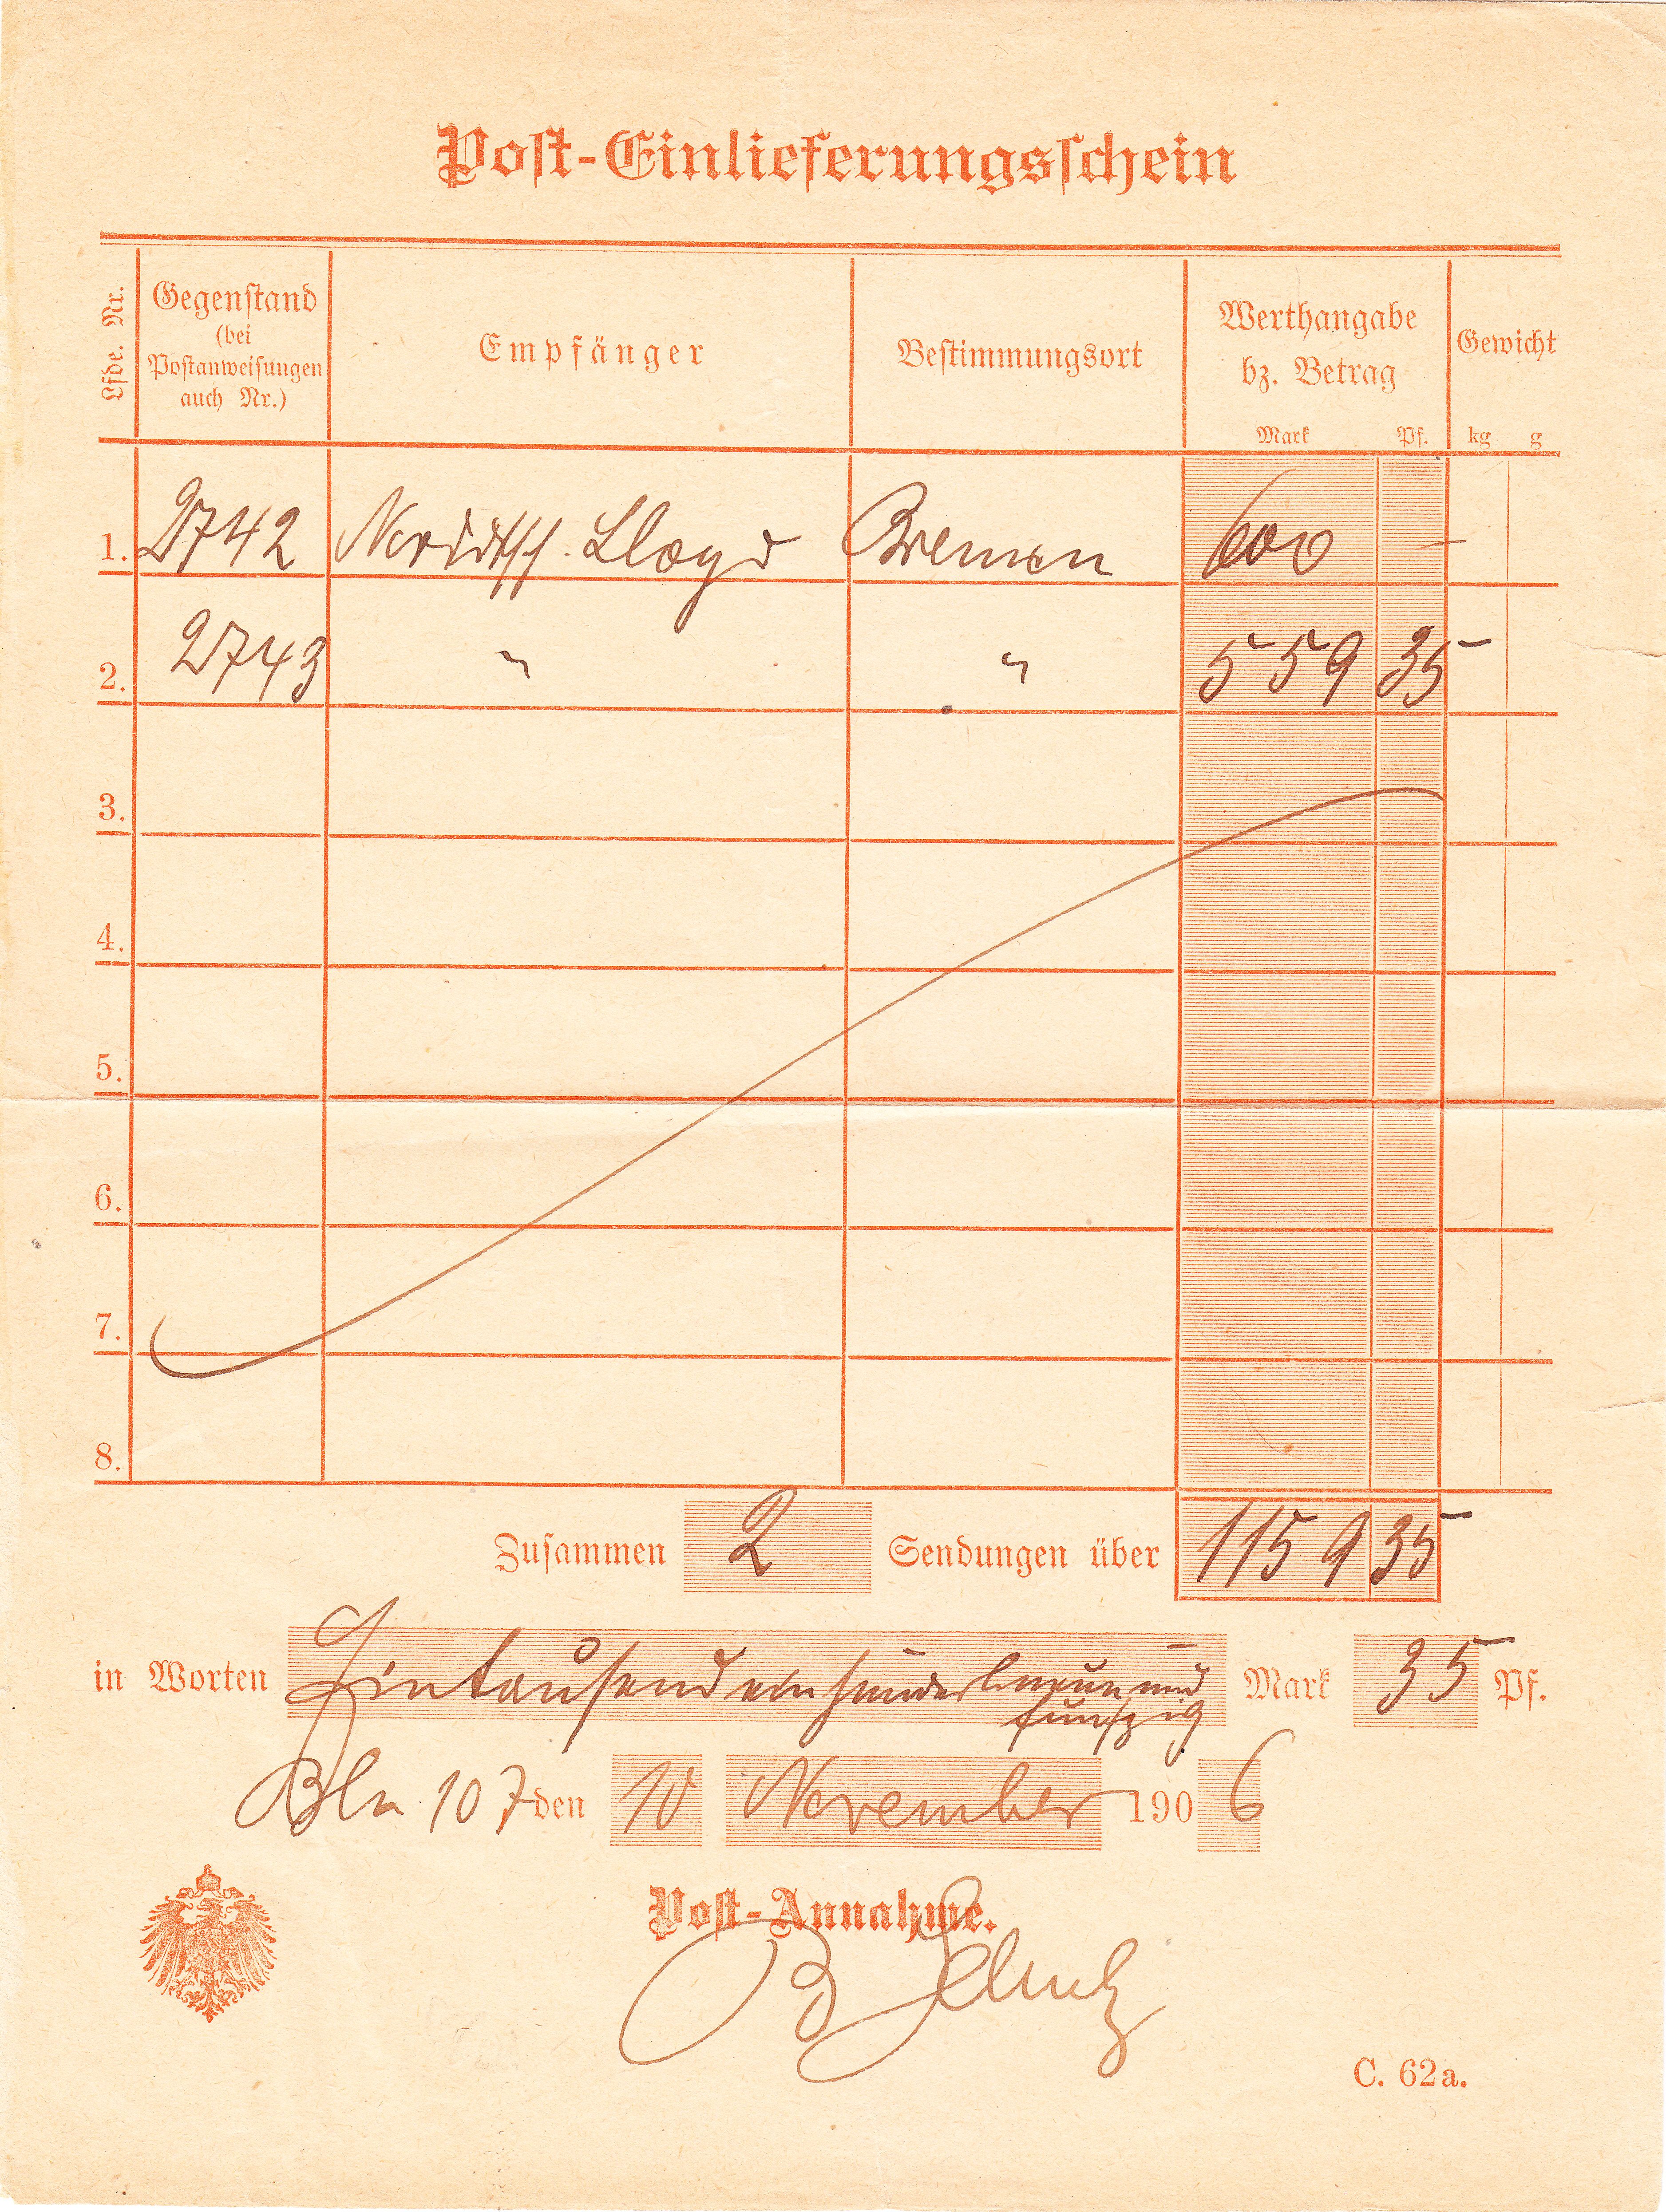 Post-Einlieferungsschein
Lfde. Nr.
Gegenstand
(bei
Postanweisungen
auch Nr.)
Empfänger
Bestimmungsort
Werthangabe
bz. Betrag
Mark Pf.
Gewicht
kg g
1. 2742 Norddtsch. Lloyd Bremen 600 —
2. 2743 " " 559 35
3.
4.
5.
6.
7.
8.
Zusammen 2 Sendungen über 1159 35
in Worten Eintausend einhundertneunund Mark 35 Pf.
fünfzig
Bln 107 den 10 November 1906
Post-Annahme.
C. 62a.